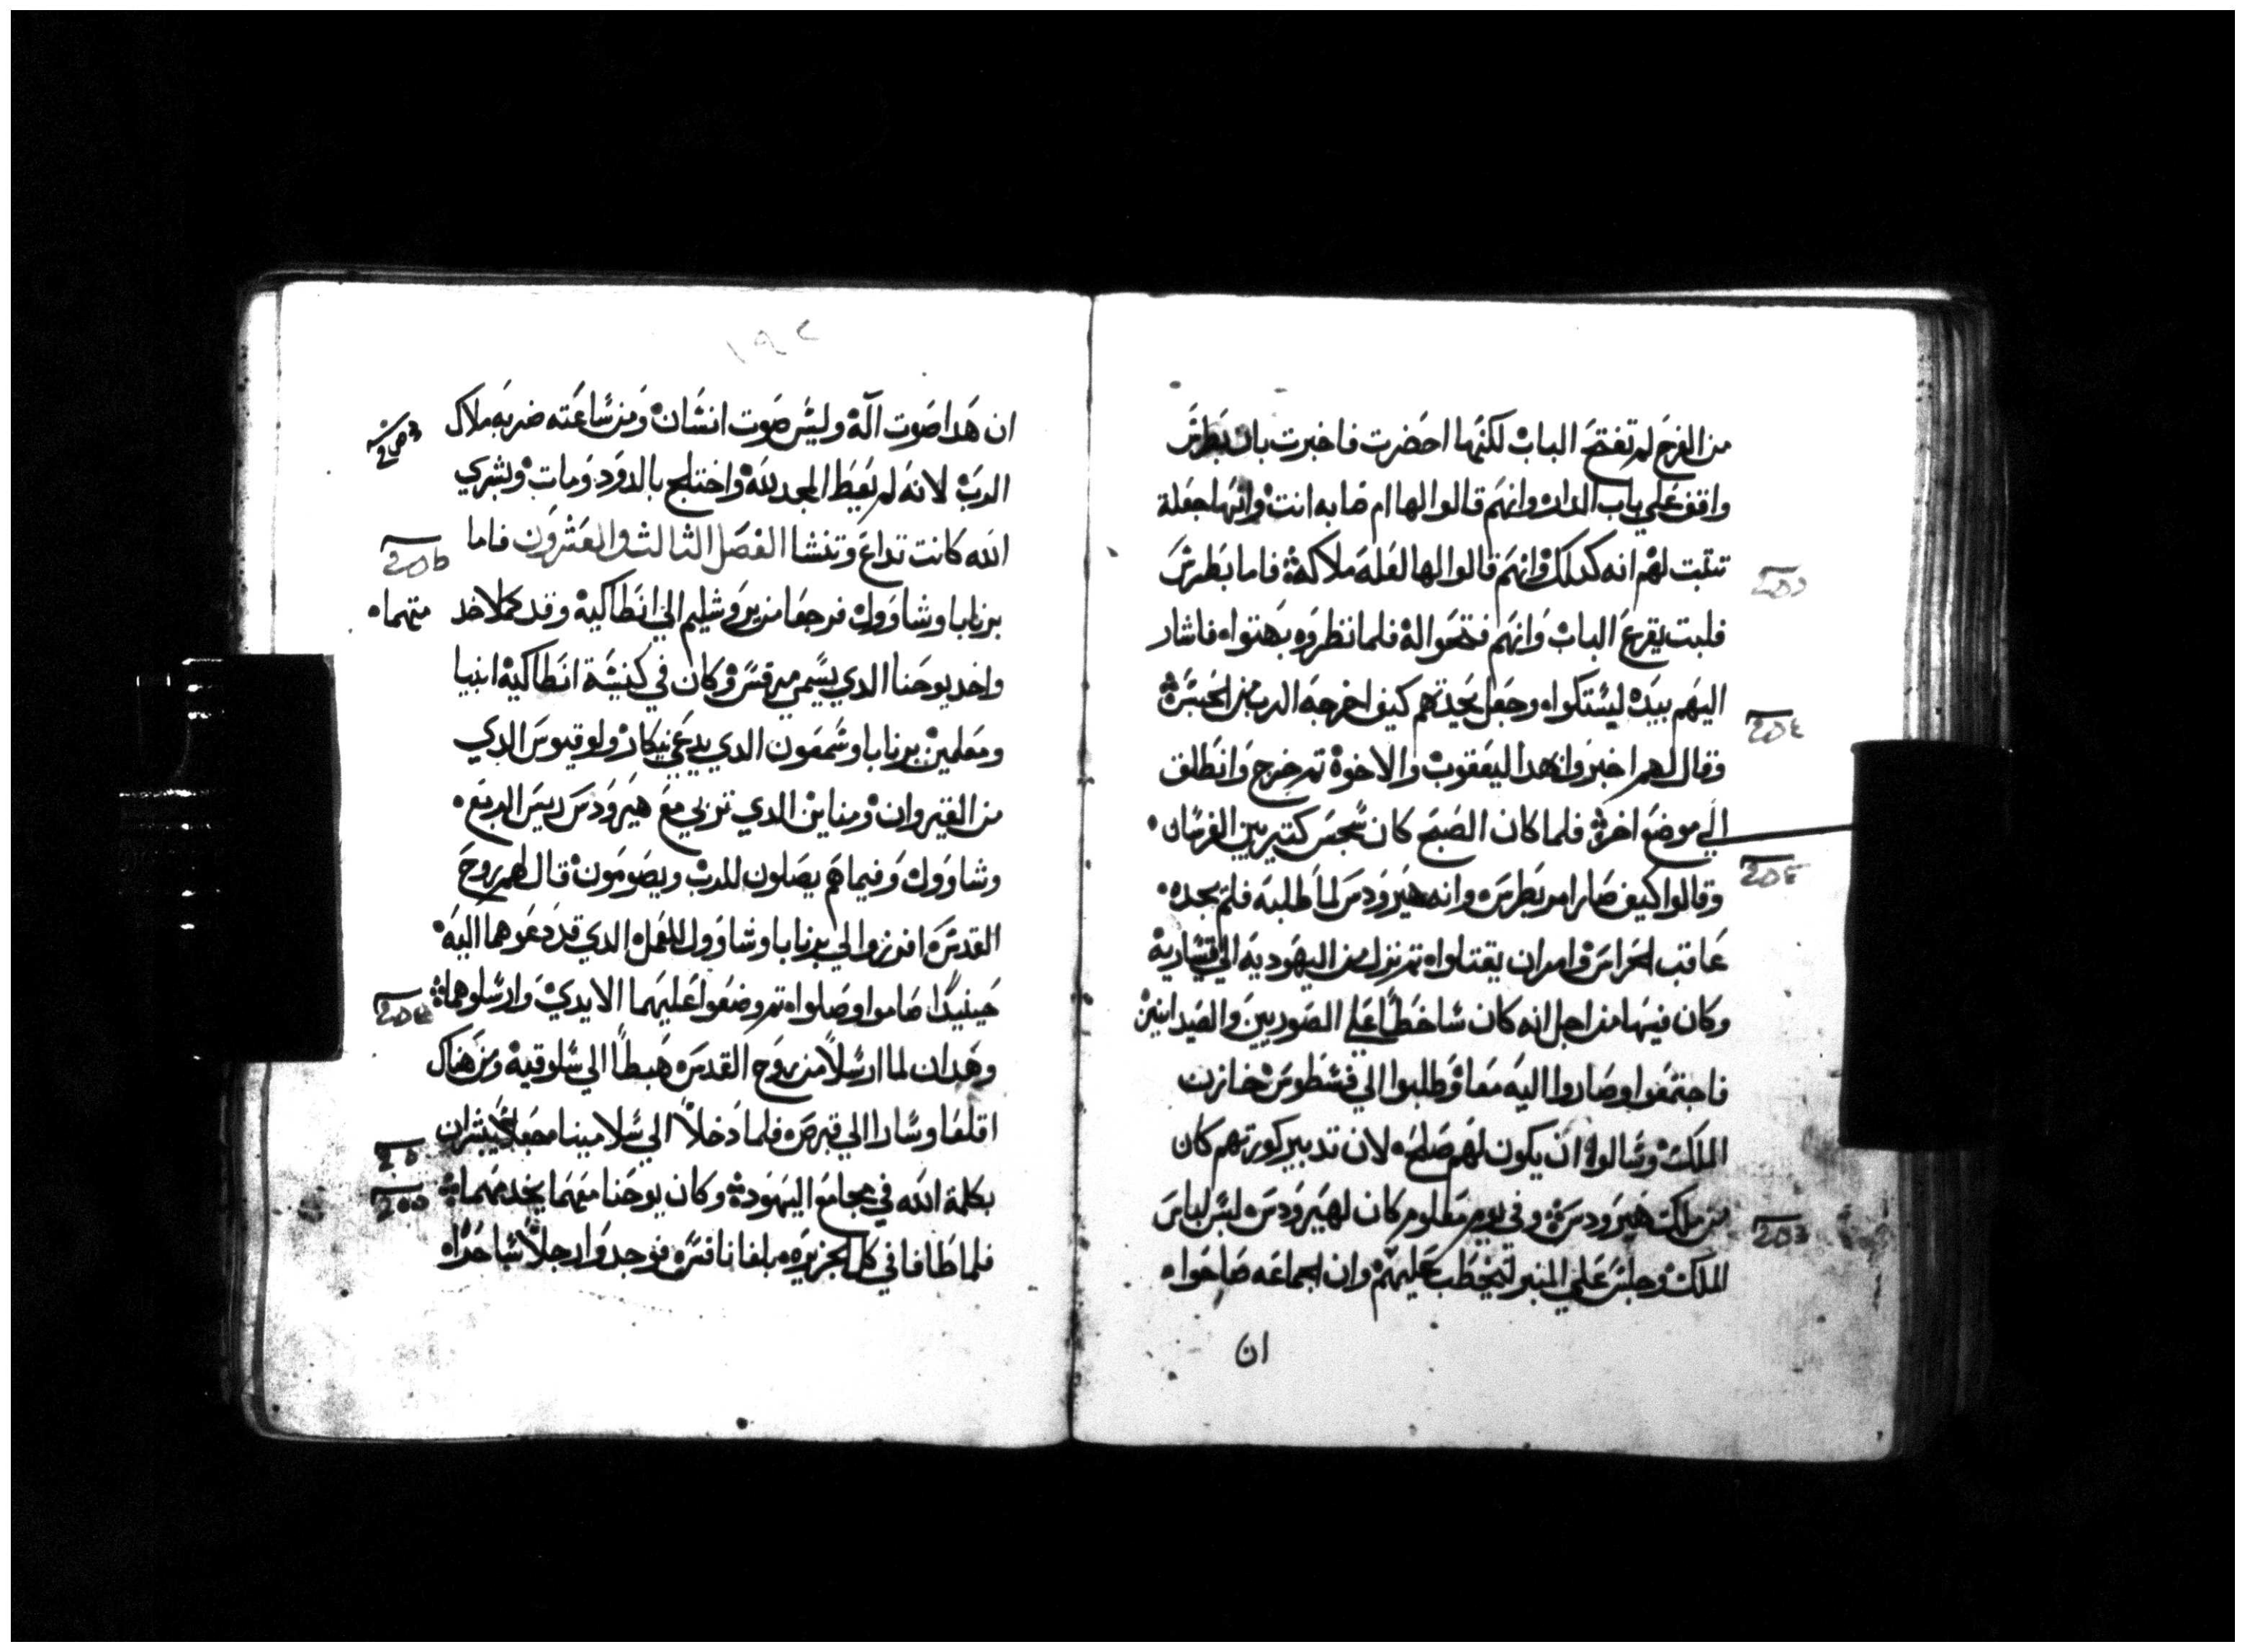 من الفرح لم تفتح الباب لكنها احضرت فاخبرت بان بطرس
واقف علي باب الدار وانهم قالوا لها ام صابه انت وانها جعلة
تتبت لهم انه كدلك وانهم قالوا لها لعله ملاكه فاما بطرس
فلبت يقرع الباب وانهم فتحوا له فلما نظروه بهتواه فاشار
اليهم بيده ليستكواه وجعل يحدتهم كيف اخرجه الرب من الحبس
وقال لهم اخبروا بهدا ليعقوب والاخوة تم خرج وانطلق
الي موضع اخر فلما كان الصبح كان سجس كتير بين الفرسان
وقالوا كيف صار امر بطرس وانه هيرودس لما طلبه فلم يجده
عاقب الحراس وامر ان يقتلواه تم نزل من اليهوديه الي قيسارية
وكان فيها من اجل انه كان ساخطا علي الصوريين والصيدانيين
فاجتمعوا وصاروا اليه معا وطلبوا الي فسطوس خازن
الملك وسالواه ان يكون لهم صلح لان تدبير كورتهم كان
من ملك هيرودس وفي يوم معلوم كان لهيرودس لبس لباس
الملك وجلس علي المنبر ليخطب عليهم وان الجماعه صاحواه
ان
١٩٢
ان هدا صوت اله وليس صوت انسان ومن ساعته ضربه ملاك
الرب لانه لم يعط المجد لله واختلج بالدود ومات وبشري
الله كانت تداع وتنشا الفصل التالت والعشرون فاما
برنابا وشاوول فرجعا من يروشليم الي انطاكيه وقد كملا خد
متهماه
واخد يوحنا الدي يسمي مرقس وكان في كنيسة انطاكيه انبيا
ومعلمين برنابا وشمعون الدي يدعي نيكار ولوقيوس الدي
من القيروان ومناين الدي تربي مع هيرودس ريس الربع
وشاوول وفيما هم يصلون للرب ويصومون قال لهم روح
القدس افرزوا لي برنابا وشاوول للعمل الدي قد دعوهما اليه
حينيدا صاموا وصلواه تم وضعوا عليهما الايدي وارسلوهما
وهدان لما ارسلا من روح القدس هبطا الي سلوقيه ومن هناك
اقلعا وسارا الي قبرص فلما دخلا الي سلامينا جعلا يبشران
بكلمة الله في مجامع اليهود وكان يوحنا معهما يخدمهما
فلما طافا في كل الجزيره بلغا نافس فوجدوا رجلا ساحراه